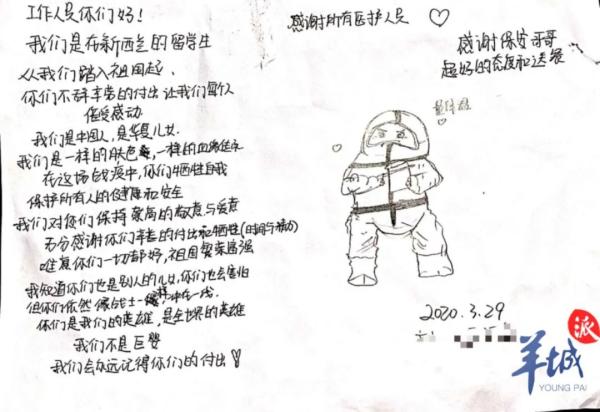 工作人员你们好！
我们是在新西兰的留学生
从我们踏入祖国起、
你们不辞辛劳的付出让我们每个人
倍受感动
我们是中国人，是华夏儿女。
我们是一样的肤色，一样的血缘
在这场战疫中，你们牺牲自我
保护所有人的健康和安全
我们对你们保持崇高的敬意与爱意
万分感谢你们辛苦的付出和牺牲(时间与精力)
唯愿你们一切都好，祖国繁荣富强
我知道你们也是别人的儿女，你们也会害怕
但你们依然像战士一样冲在一线
你们是我们的英雄，是全世界的英雄
我们不是巨婴
我们会永远记得你们的付出
感谢所有医护人员
感谢保安哥哥
超好的态度和送餐
2020.3.29
羊城派
YOUNG PAI